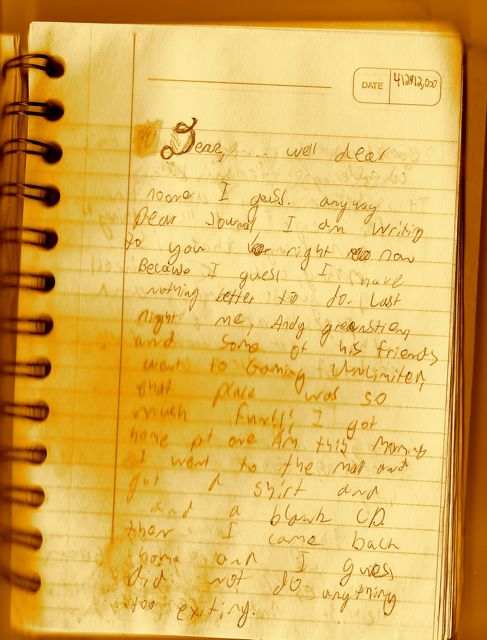 DATE
Dear, .... well dear
noone I gess. anyway
Dear Journal, I am writing
to you right now
Because I guess I have
nothing better to do. Last
night me, Andy greenstien,
and some of his friends
went to Gaming Unlimited,
that place was so
mush fun!!; I got
home at one Am this morning
I went to the mall and
got A shirt and
and a blank CD.
then I came back
home and I guess
did not do anything
exiting.